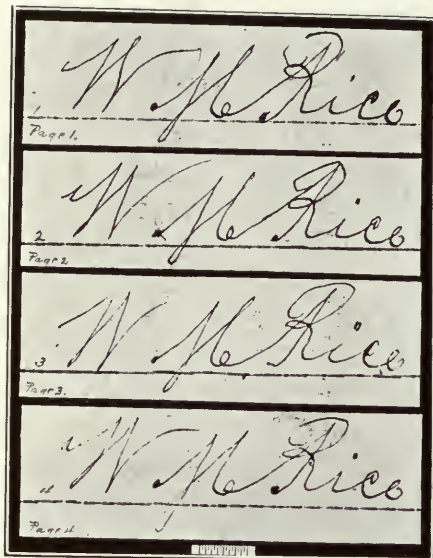 W. M. Rice
1
Page 1.
W. M. Rice
2
Page 2
W. M. Rice
3
Page 3.
W. M. Rice
4
Page 4